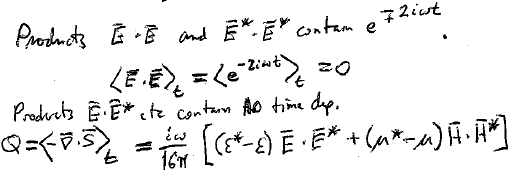 Products E̅·E̅ and E̅*·E̅* contain e^{∓2iωt}.
⟨E̅·E̅⟩_t = ⟨e^{-2iωt}⟩_t = 0
Products E̅·E̅* etc contain NO time dep.
Q = ⟨-∇̅·S̅⟩_t = iω/16π [(ε*-ε) E̅·E̅* + (μ*-μ) H̅·H̅*]